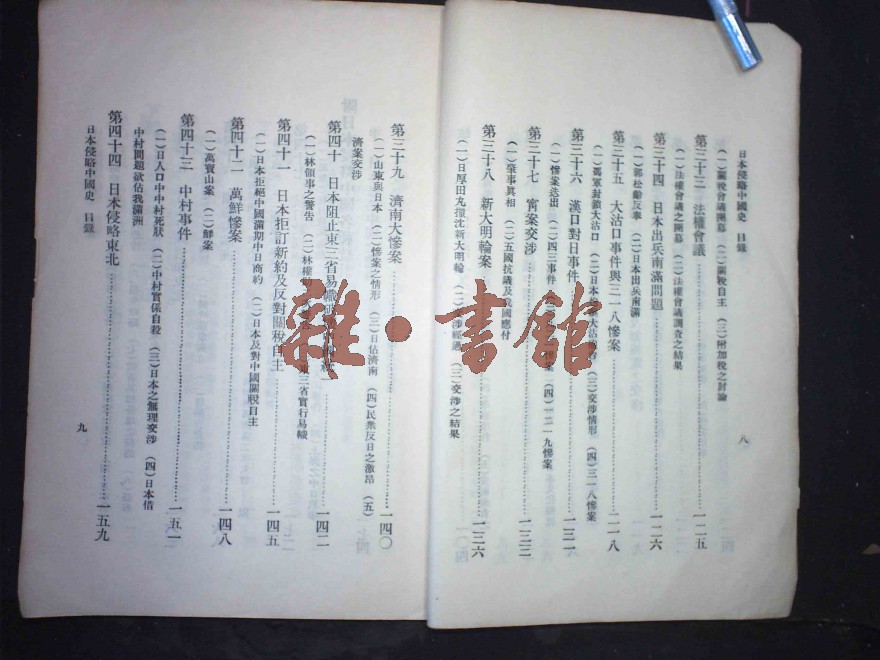 日本侵略中國史 目錄
(一)關稅會議開幕 (二)關稅自主 (三)附加稅之討論
第三十三 法權會議…………一二五
(一)法權會議之開幕 (二)法權會議調查之結果
第三十四 日本出兵南滿問題…………一二六
(一)郭松齡反奉 (二)日本出兵南滿
第三十五 大沽口事件與三一八慘案…………一二八
(一)馮軍封鎖大沽口 (二)日本 大沽 (三)交涉情形 (四)三一八慘案
第三十六 漢口對日事件…………一三一
(一)慘案迭出 (二)四三事件 案 (四)一二一九慘案
第三十七 寗案交涉…………一三三
(一)肇事真相 (二)五國抗議及我國應付
第三十八 新大明輪案…………一三六
(一)日厚田丸撞沈新大明輪 (二) 涉經過 (三)交涉之結果
八
第三十九 濟南大慘案…………一四〇
(一)山東與日本 (二)慘案之情形 (三)日佔濟南 (四)民衆反日之激昂 (五)
濟案交涉
第四十 日本阻止東三省易幟 …………一四二
(一)林領事之警告 (二)林權 三省實行易幟
第四十一 日本拒訂新約及反對關稅自主…………一四五
(一)日本拒絕中國滿期中日商約 (二)日本反對中國關稅自主
第四十二 萬鮮慘案…………一四八
(一)萬寶山案 (二)鮮案
第四十三 中村事件…………一五一
(一)日人口中中村死狀 (二)中村實係自殺 (三)日本之無理交涉 (四)日本借
中村問題欲佔我滿洲
第四十四 日本侵略東北…………一五九
日本侵略中國史 目錄
九
雜·書館